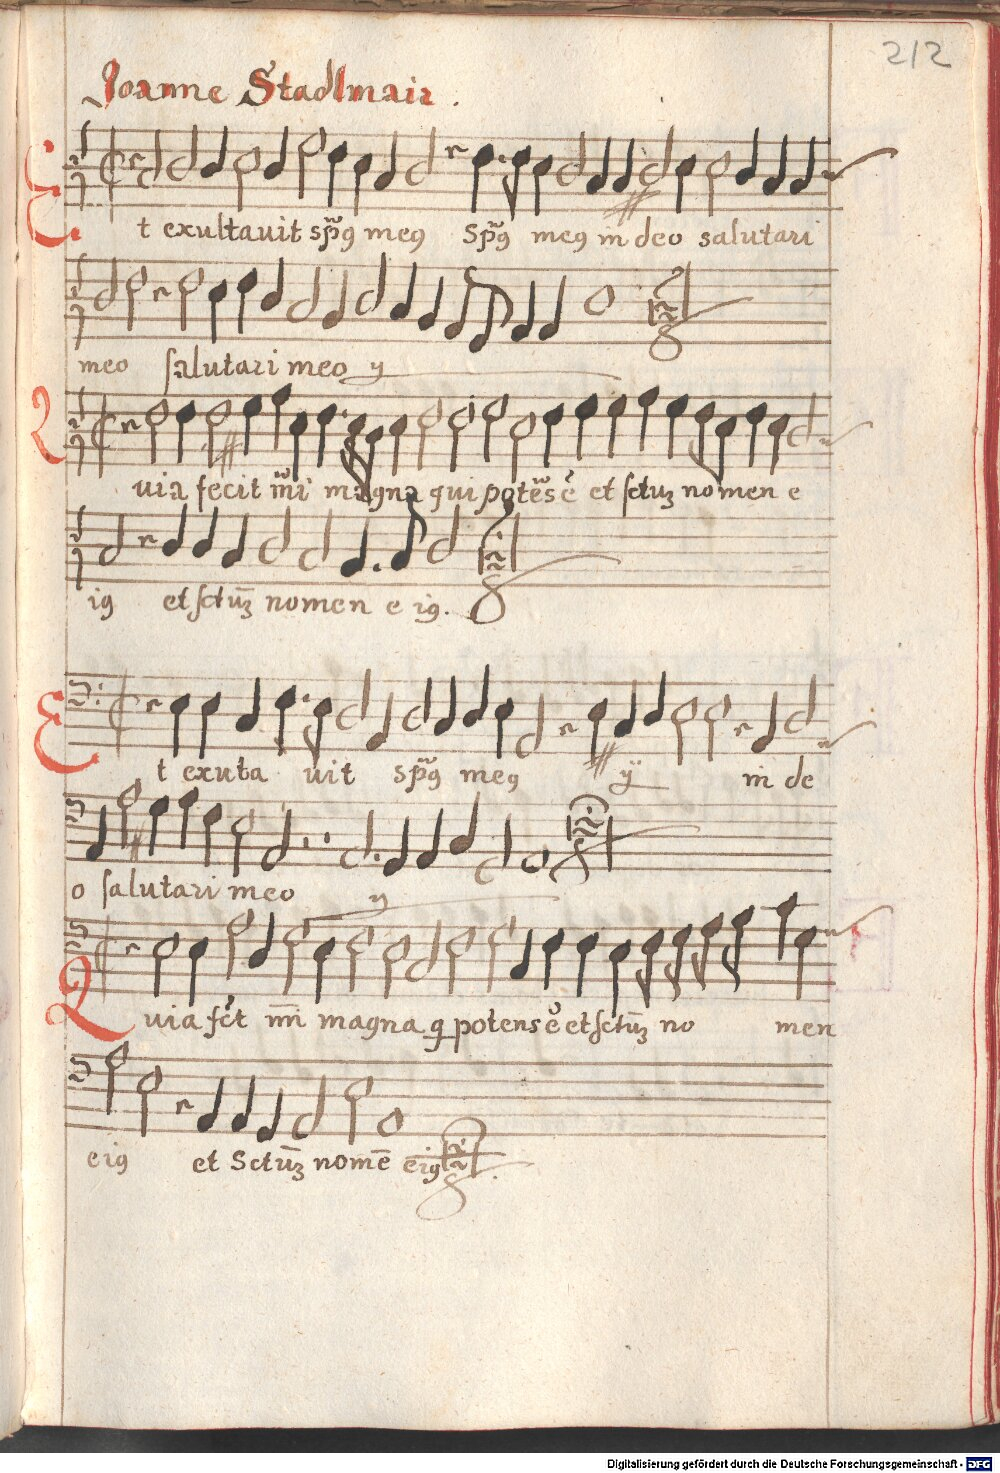 212
Joanne Stadlmair.
Et exultavit spūs meus spūs meus in deo salutari
meo salutari meo ij
Quia fecit m̄i magna qui potēs ē et sctuʒ nomen e
ius et sctūʒ nomen e ius.
Et exulta vit spūs meus ij in de
o salutari meo ij
Quia fēt m̄i magna q potens ē et sctūʒ no men
eius et Sctūʒ nomē eius.
Digitalisierung gefördert durch die Deutsche Forschungsgemeinschaft - DFG